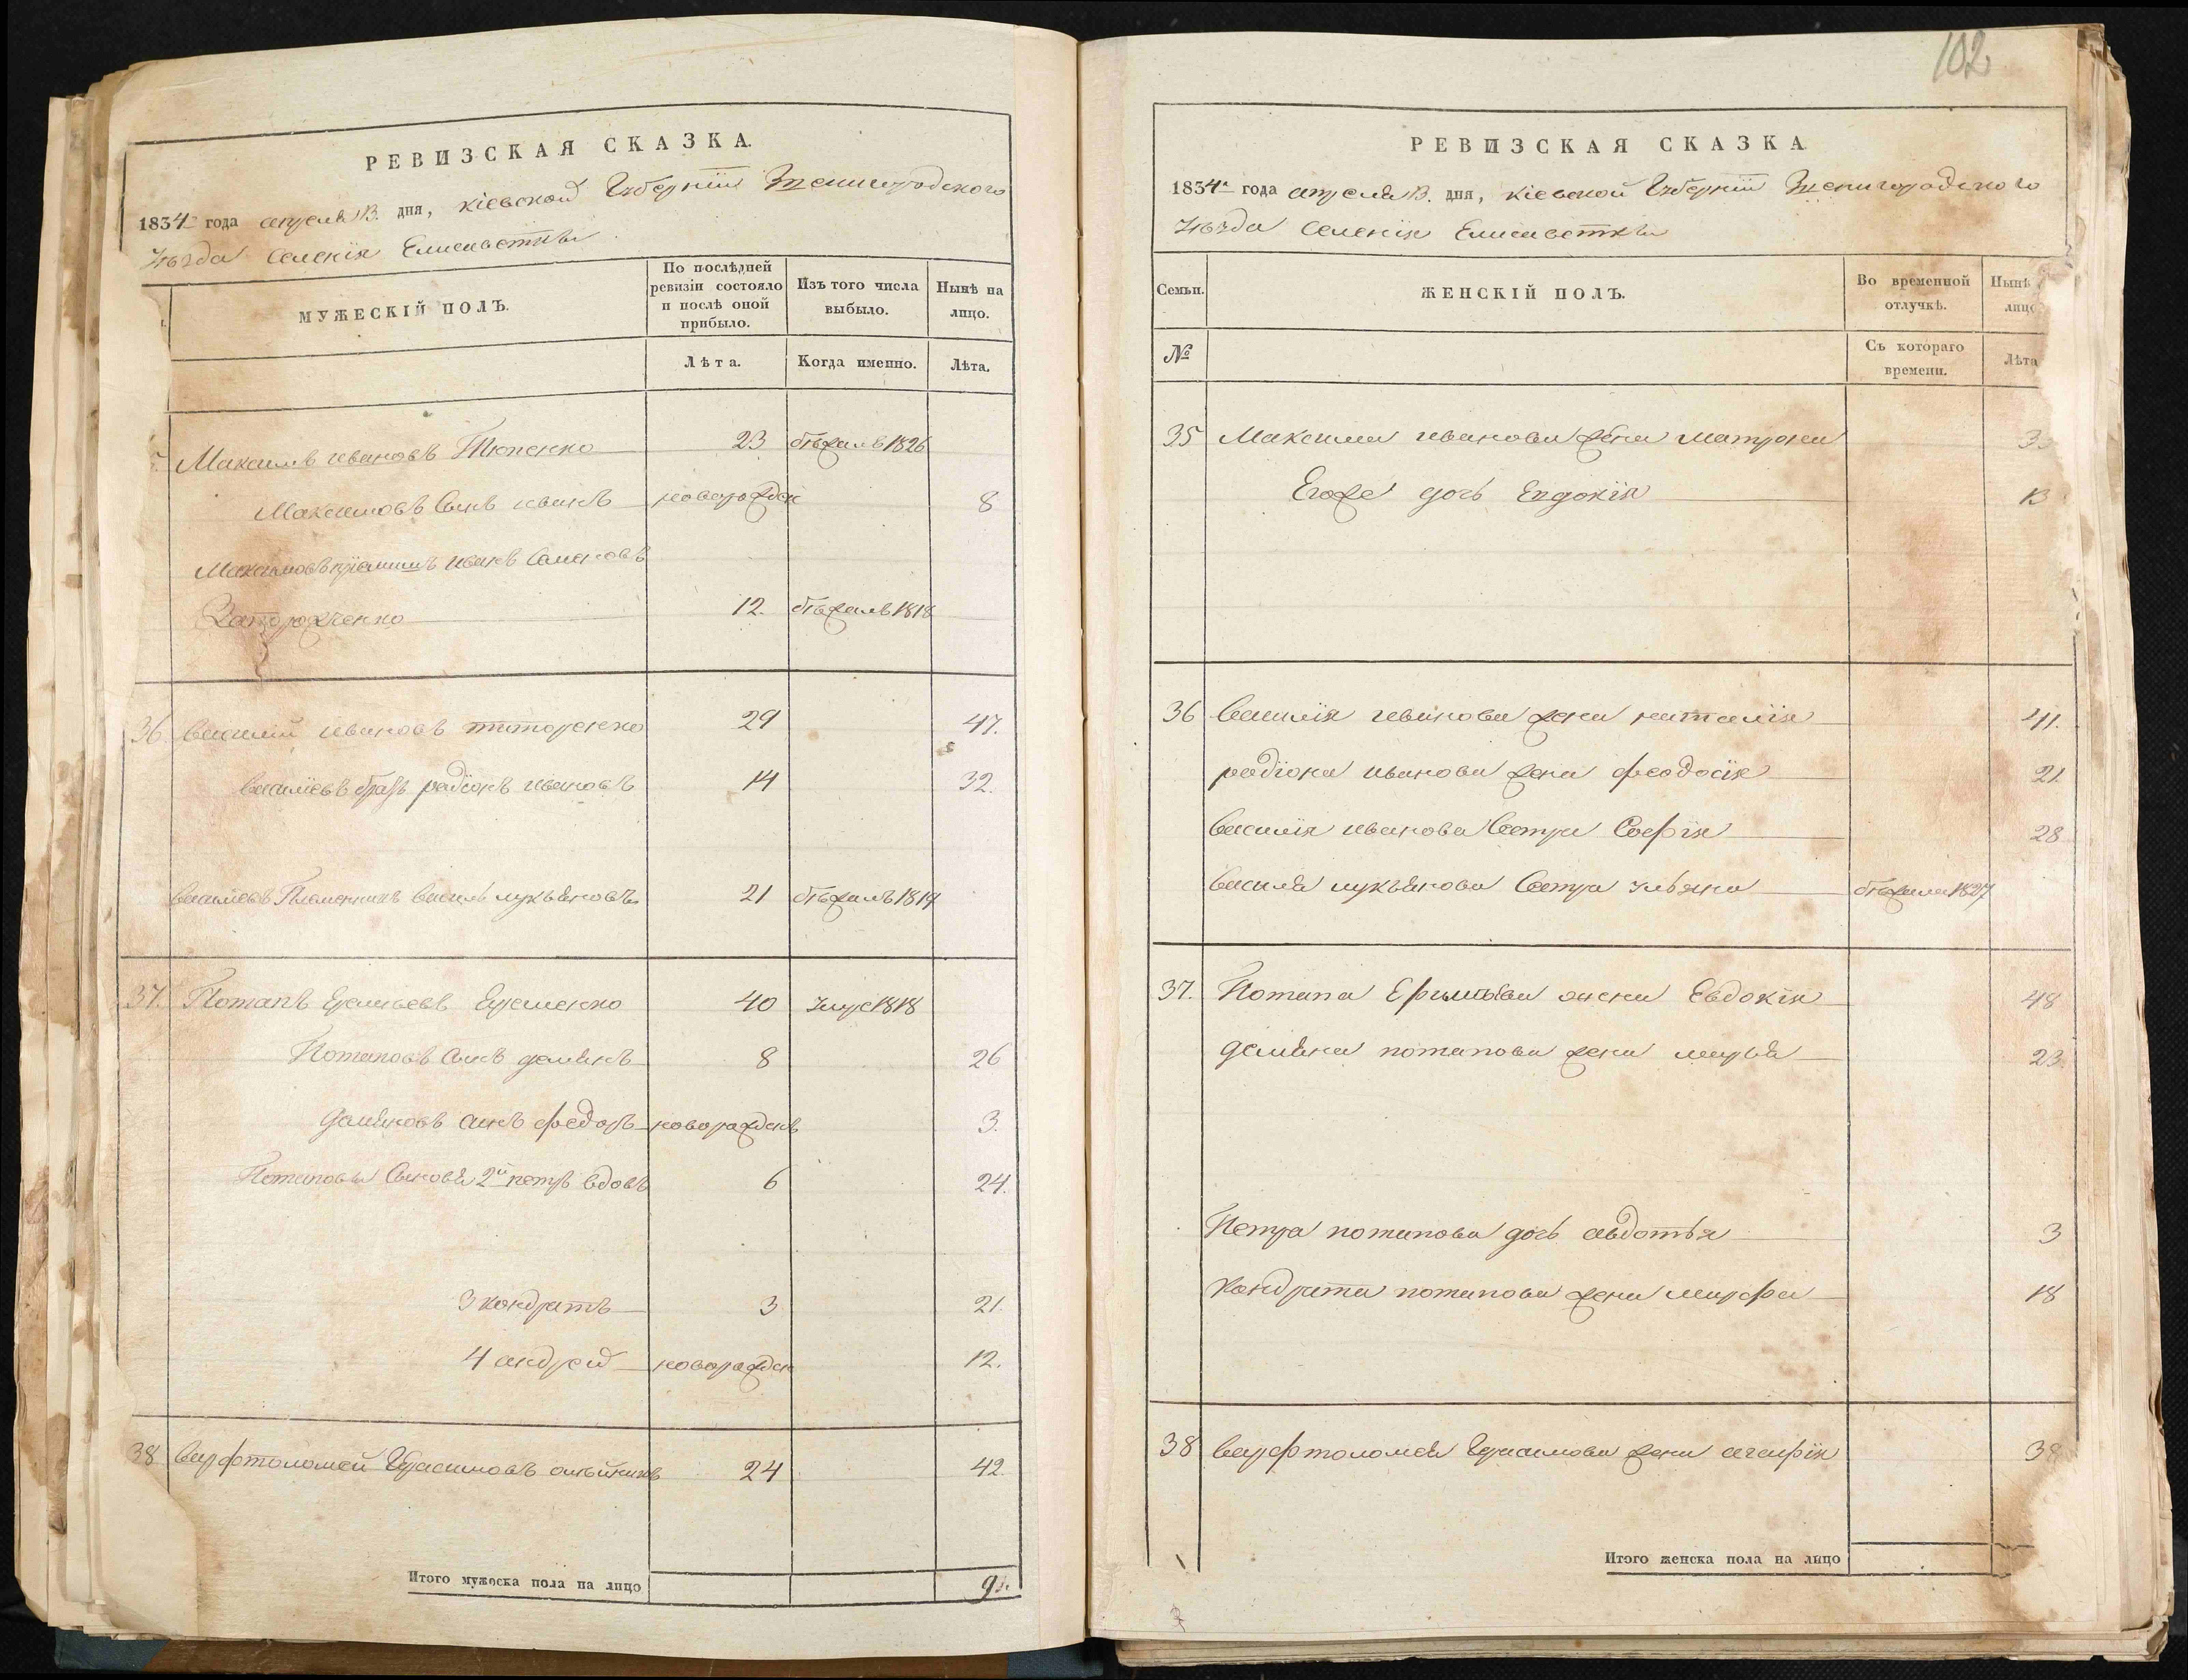 РЕВИЗСКАЯ СКАЗКА.
1834 года апреля 13. дня, кіевской Губерніи Звенигородского
Уѣзда Селенія Елисаветки
МУЖЕСКІЙ ПОЛЪ.
По послѣдней ревизіи состояло и послѣ оной прибыло.
Изъ того числа выбыло.
Нынѣ на лицо.
Лѣта.
Когда именно.
Лѣта.
Максимъ ивановъ 23 1826
Максимовъ Сынъ иванъ новорожден 8
Максимовъ иванъ Семеновъ
12. 1818
36. василий ивановъ титоренко 29 47.
василіевъ братъ радіонъ ивановъ 14 32.
василіевъ Племенникъ василь лукьяновъ 21 1819
37. Потапъ Еремѣевъ Еременко 40 умре 1818
Потаповъ Сынъ демянъ 8 26
демяновъ сынъ федоръ новорожденъ 3.
Потаповы Сыновя 2й петръ вдовъ 6 24.
3 кондратъ 3 21.
4 андрей новорожден 12.
38 варфтоломей Герасимовъ олейникъ 24 42.
Итого мужеска пола на лицо 9.
102
РЕВИЗСКАЯ СКАЗКА
1834 года апреля 13. дня, кіевской Губерніи Звенигородского
Уѣзда Селенія Елисаветки
Семьи.
ЖЕНСКІЙ ПОЛЪ.
Во временной отлучкѣ.
Нынѣ
лицо
№
Съ котораго времени.
Лѣта
35 Максима иванова жена матрона
Егоже дочь Евдокія 13
36 василія иванова жена наталія 41.
радіона иванова жена феодосія 21.
василія иванова Сестра Софія 28
василя лукьянова Сестра ульяна 1827
37. Потапа Еримѣева жена Евдокія 48
демяна потапова жена марья 23.
Петра потапова дочь авдотья 3
Кондрата потапова жена марфа 18
38 варфтоломея Герасимова жена агафія 38
Итого женска пола на лицо